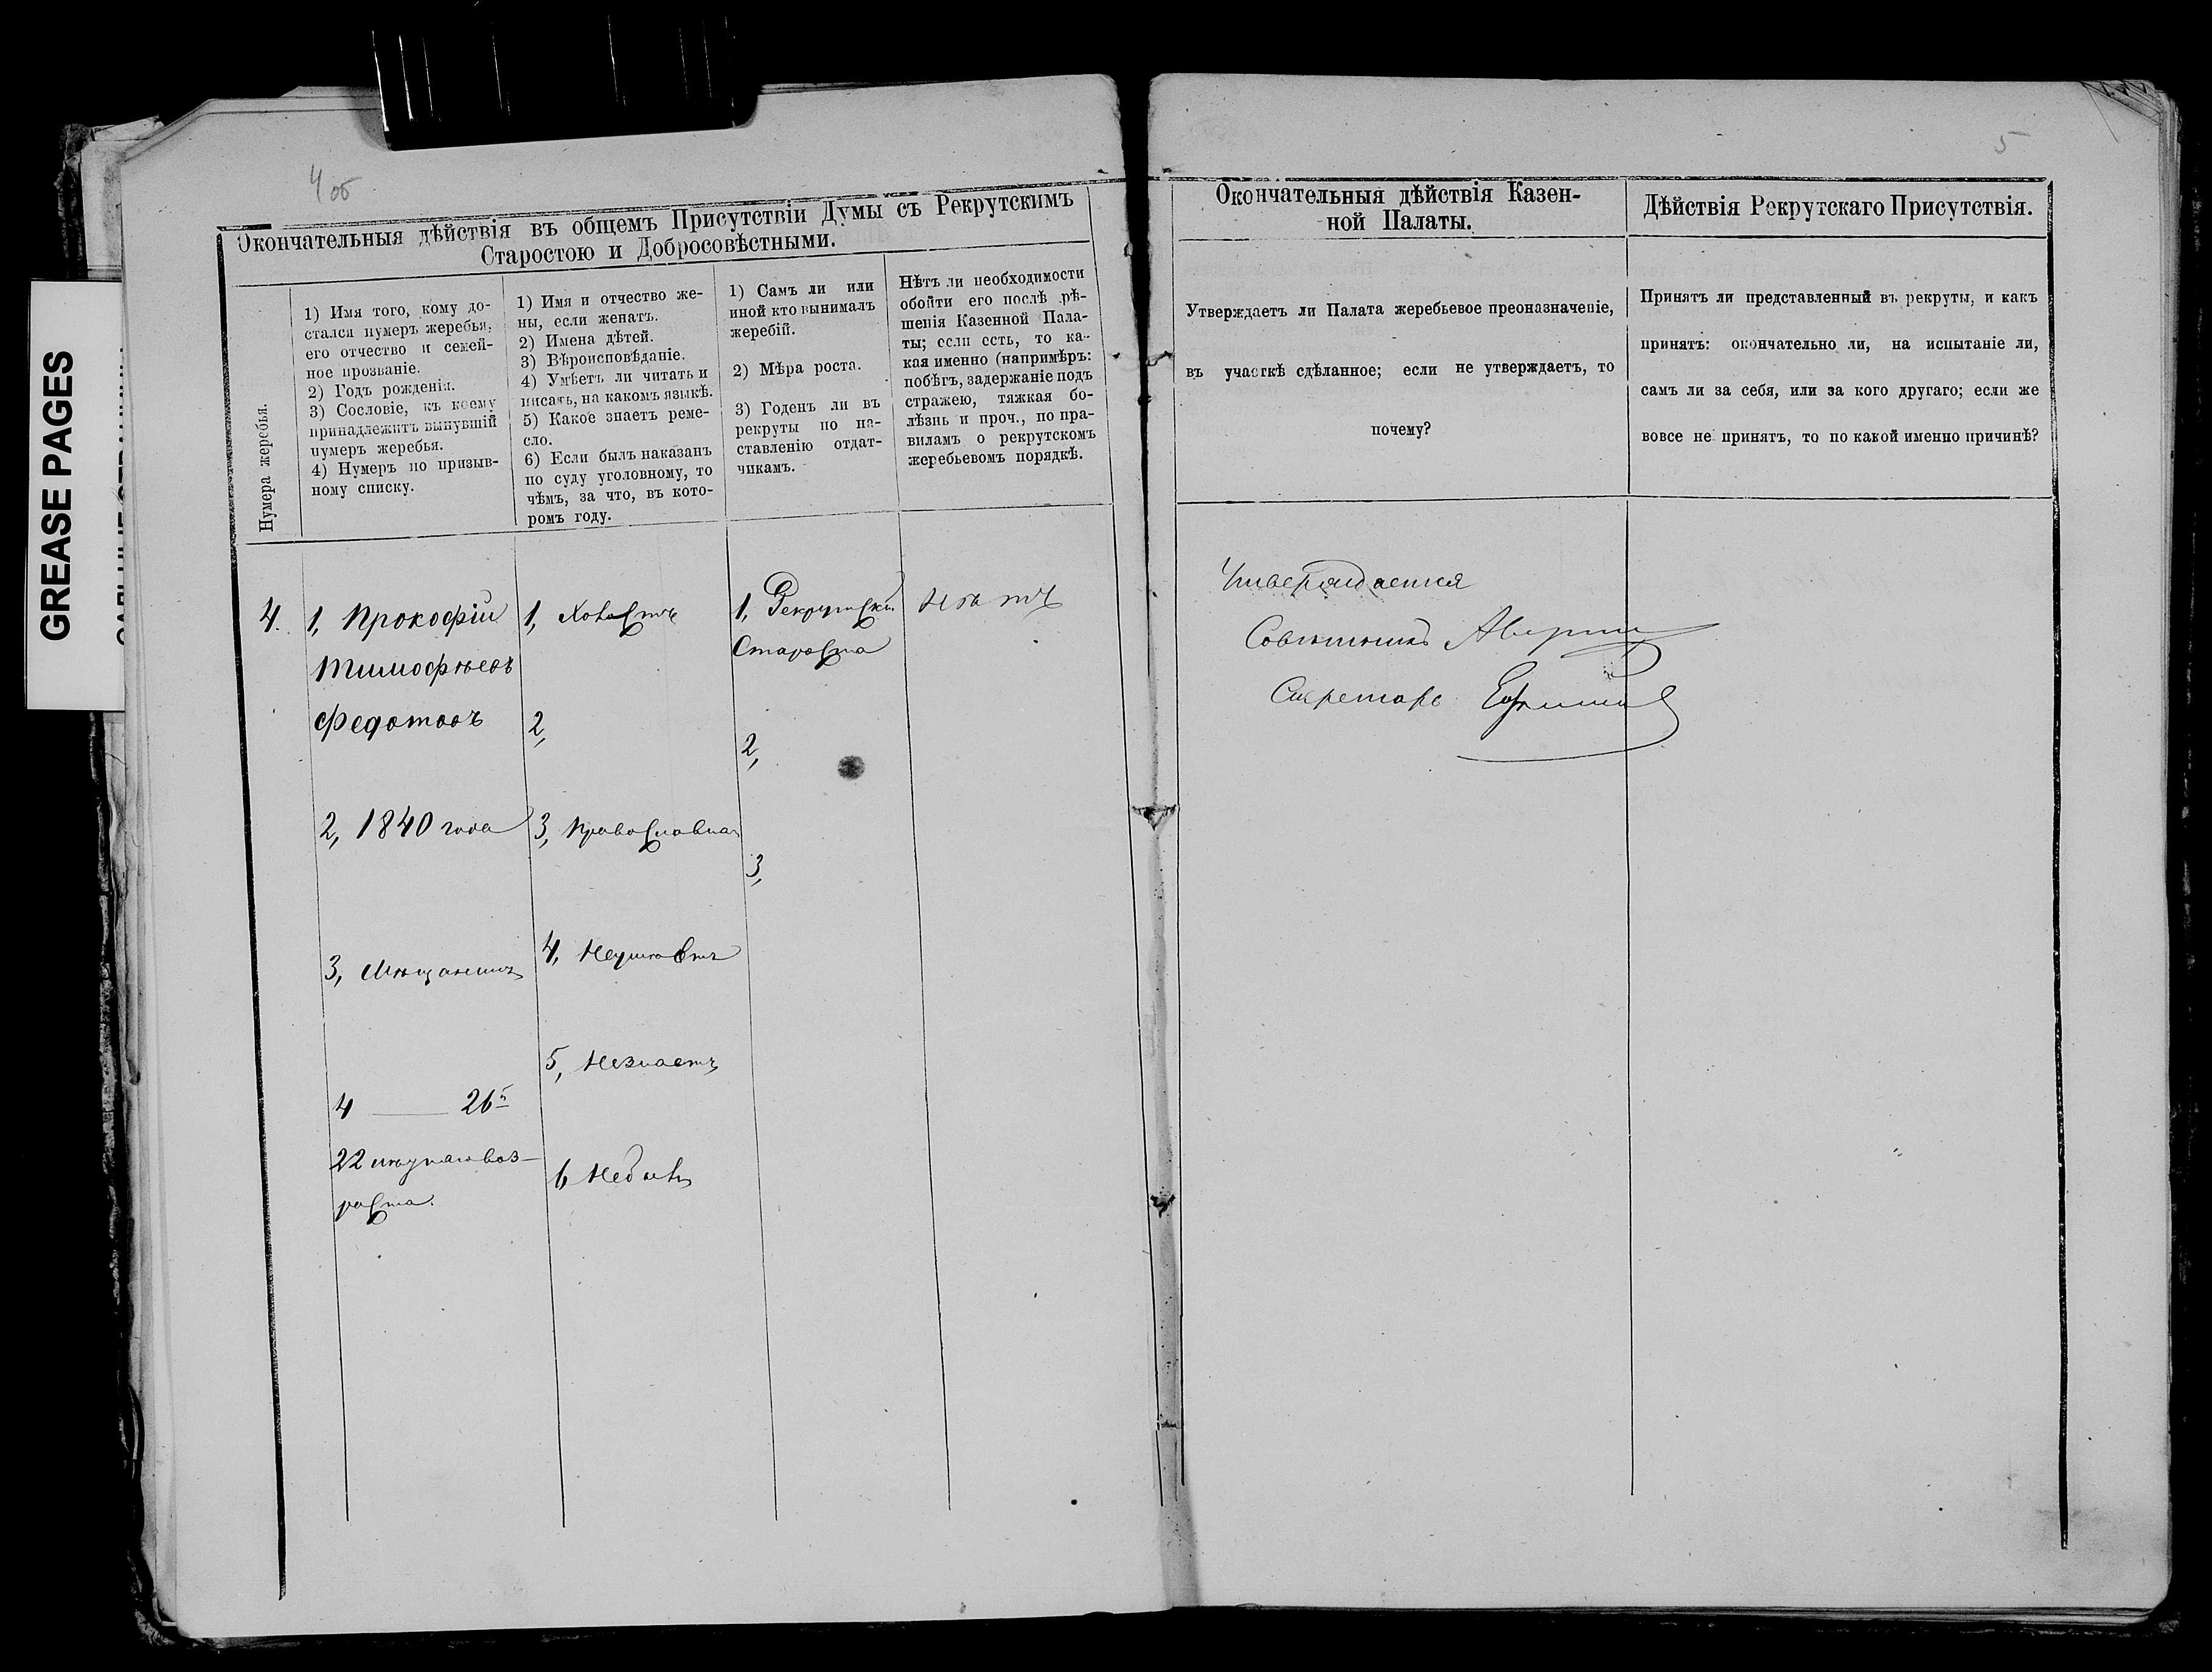 GREASE PAGES
4 об
5
Окончательныя дѣйствія въ общемъ Присутствіи Думы съ Рекрутскимъ
Старостою и Добросовѣстными.
Нумера жеребья.
1) Имя того, кому до-
стался нумеръ жеребья,
его отчество и семей-
ное прозваніе.
2) Годъ рожденія.
3) Сословіе, къ коему
принадлежитъ вынувшій
нумеръ жеребья.
4) Нумеръ по призыв-
ному списку.
1) Имя и отчество же-
ны, если женатъ.
2) Имена дѣтей.
3) Вѣроисповѣданіе.
4) Умѣетъ ли читать и
писать, на какомъ языкѣ.
5) Какое знаетъ реме-
сло.
6) Если былъ наказанъ
по суду уголовному, то
чѣмъ, за что, въ кото-
ромъ году.
1) Самъ ли или
иной кто вынималъ
жеребій.
2) Мѣра роста.
3) Годенъ ли въ
рекруты по на-
ставленію отдат-
чикамъ.
Нѣтъ ли необходимости
обойти его послѣ рѣ-
шенія Казенной Пала-
ты; если есть, то ка-
кая именно (напримѣръ:
побѣгъ, задержаніе подъ
стражею, тяжкая бо-
лѣзнь и проч., по пра-
виламъ о рекрутскомъ
жеребьевомъ порядкѣ.
4.
1, Прокофій
Тимофѣевъ
Федотовъ
2, 1840 года
3, Мѣщанинъ
4 — 26
22 лѣтняго воз-
раста.
1, Холостъ
2,
3, Православна
4, Неумѣетъ
5, Незнаетъ
6 Небылъ
1, Рекрутскій
Староста
2,
3,
Нѣтъ
Окончательныя дѣйствія Казен-
ной Палаты.
Утверждаетъ ли Палата жеребьевое преоназначеніе,
въ участкѣ сдѣланное; если не утверждаетъ, то
почему?
Утверждается
Совѣтникъ
Секретарь
Дѣйствія Рекрутскаго Присутствія.
Принятъ ли представленный въ рекруты, и какъ
принятъ: окончательно ли, на испытаніе ли,
самъ ли за себя, или за кого другаго; если же
вовсе не принятъ, то по какой именно причинѣ?